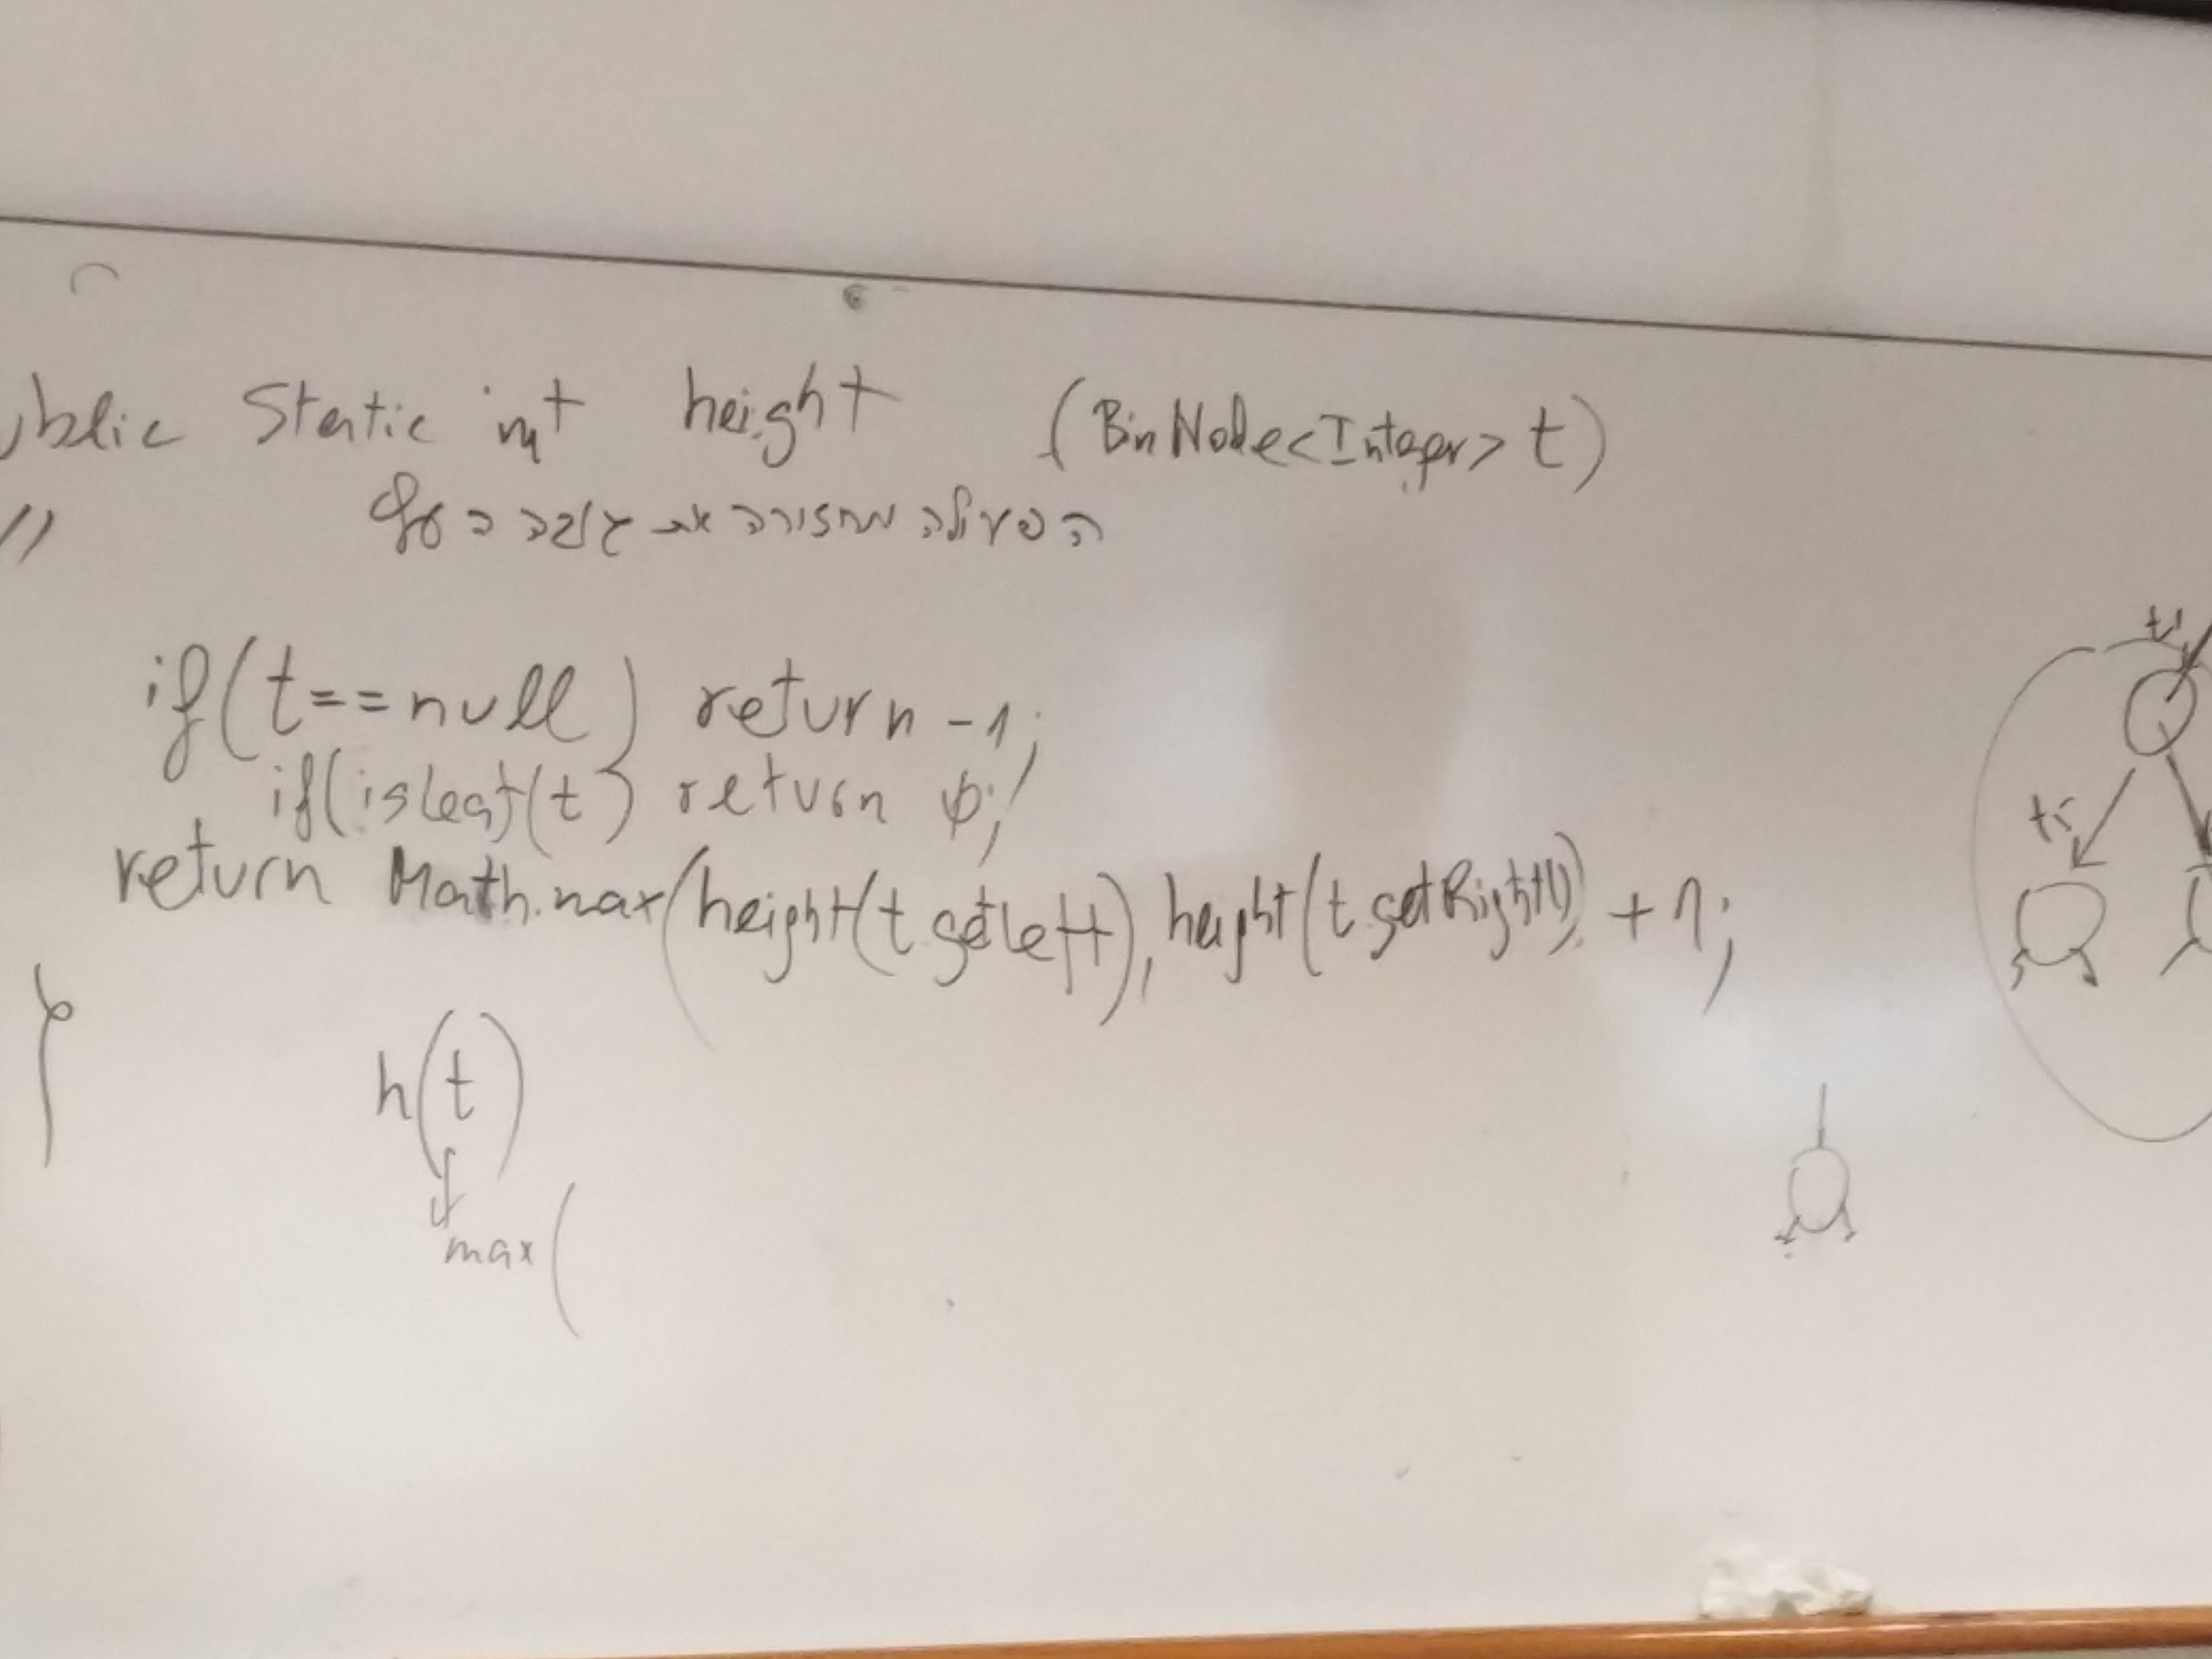 ublic static int height (BinNode<Integer> t)
// הפעולה מחזירה את גובה העץ
if(t==null) return -1;
if(isLeaf(t) return 0;
return Math.max(height(t.getLeft), height(t.getRight()) +1;
}
h(t)
max(
t1